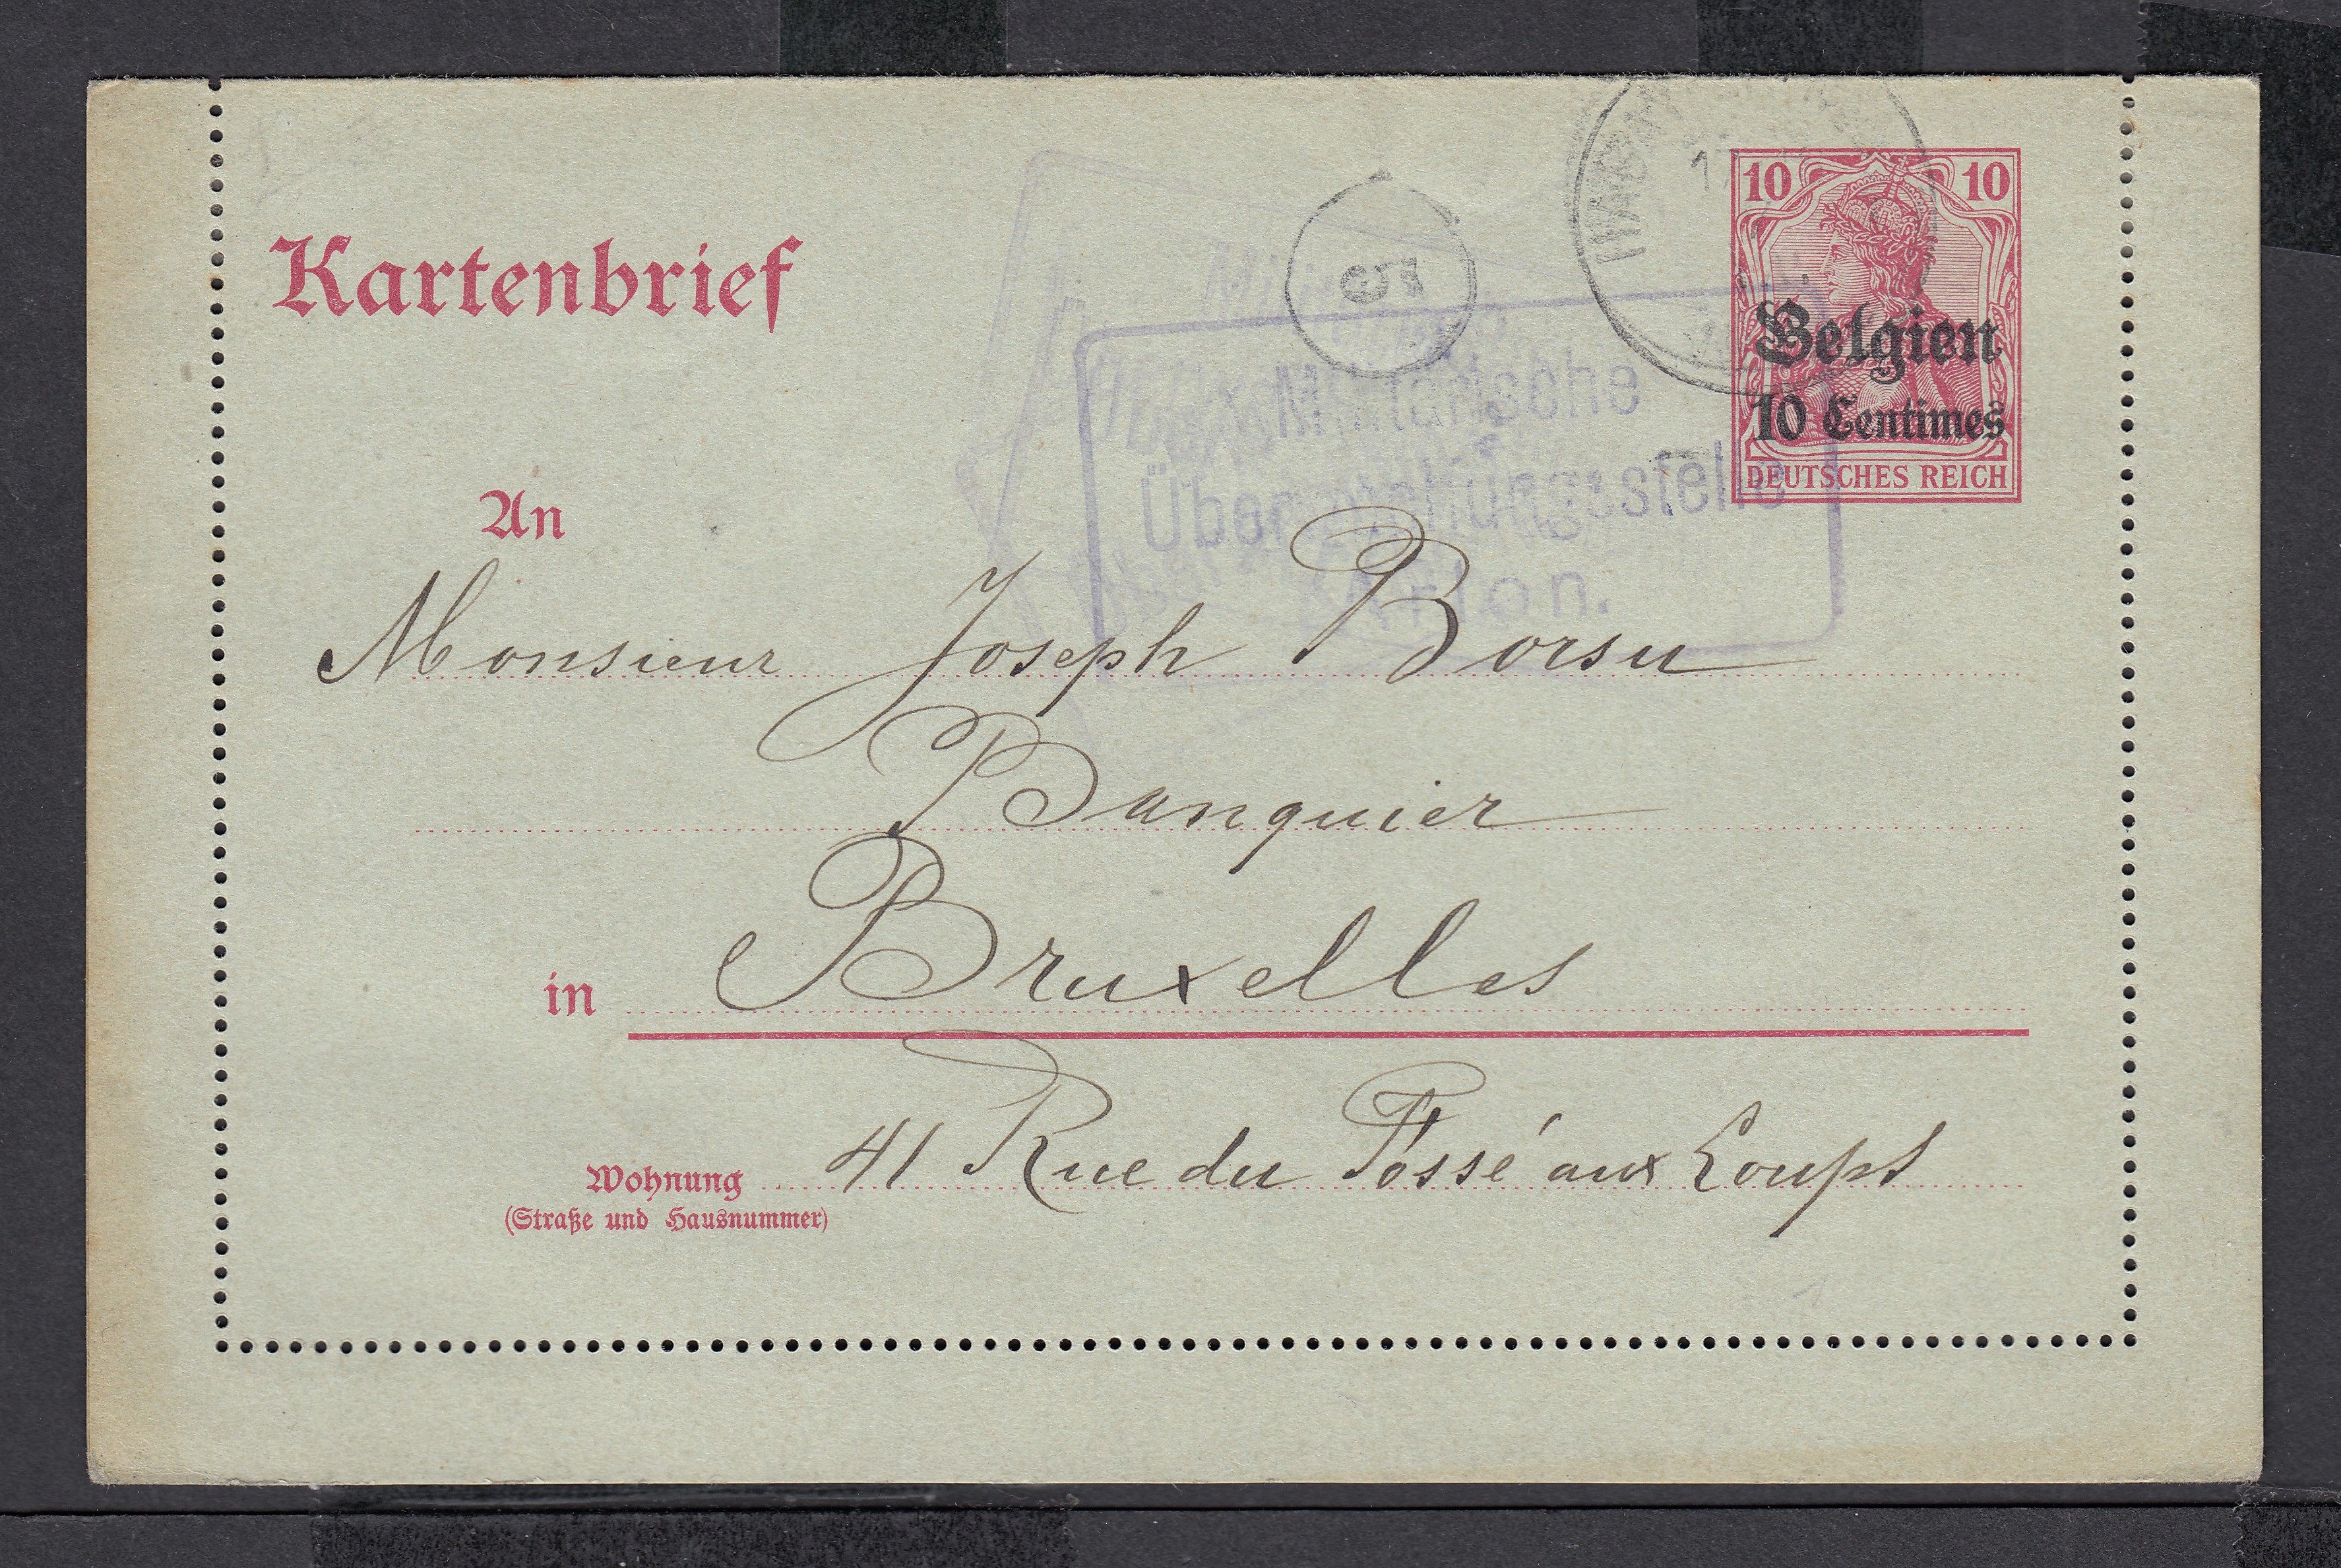 10 10
Kartenbrief
Belgien
10 Centimes
DEUTSCHES REICH
Militärische
Überwachungsstelle
Arlon.
An
Monsieur Joseph Borsu
Banquier
in Bruxelles
Wohnung 41 Rue du Fossé aux Loups
(Straße und Hausnummer)